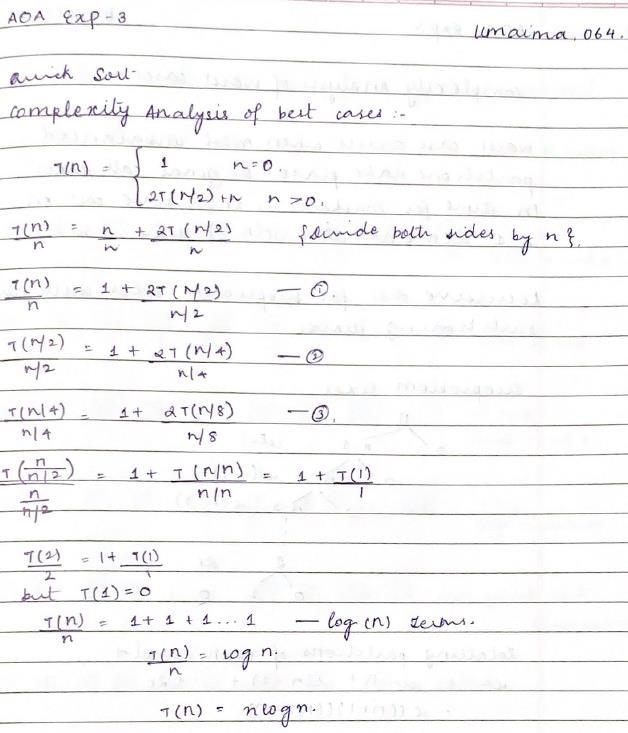 AOA Exp-3
Umaima, 064.
Quick Sort
Complexity Analysis of best cases :-
T(n) = { 1 n=0.
2T(n/2)+n n>0.
T(n)/n = n/n + 2T(n/2)/n {Divide both sides by n}.
T(n)/n = 1 + 2T(n/2)/n/2 — ①
T(n/2)/n/2 = 1 + 2T(n/4)/n/4 — ②
T(n/4)/n/4 = 1 + 2T(n/8)/n/8 — ③.
T(n/n/2)/n/n/2 = 1 + T(n/n)/n/n = 1 + T(1)/1
T(2)/2 = 1 + T(1)/1
but T(1)=0
T(n)/n = 1+1+1...1 — log(n) terms.
T(n)/n = log n.
T(n) = nlogn.